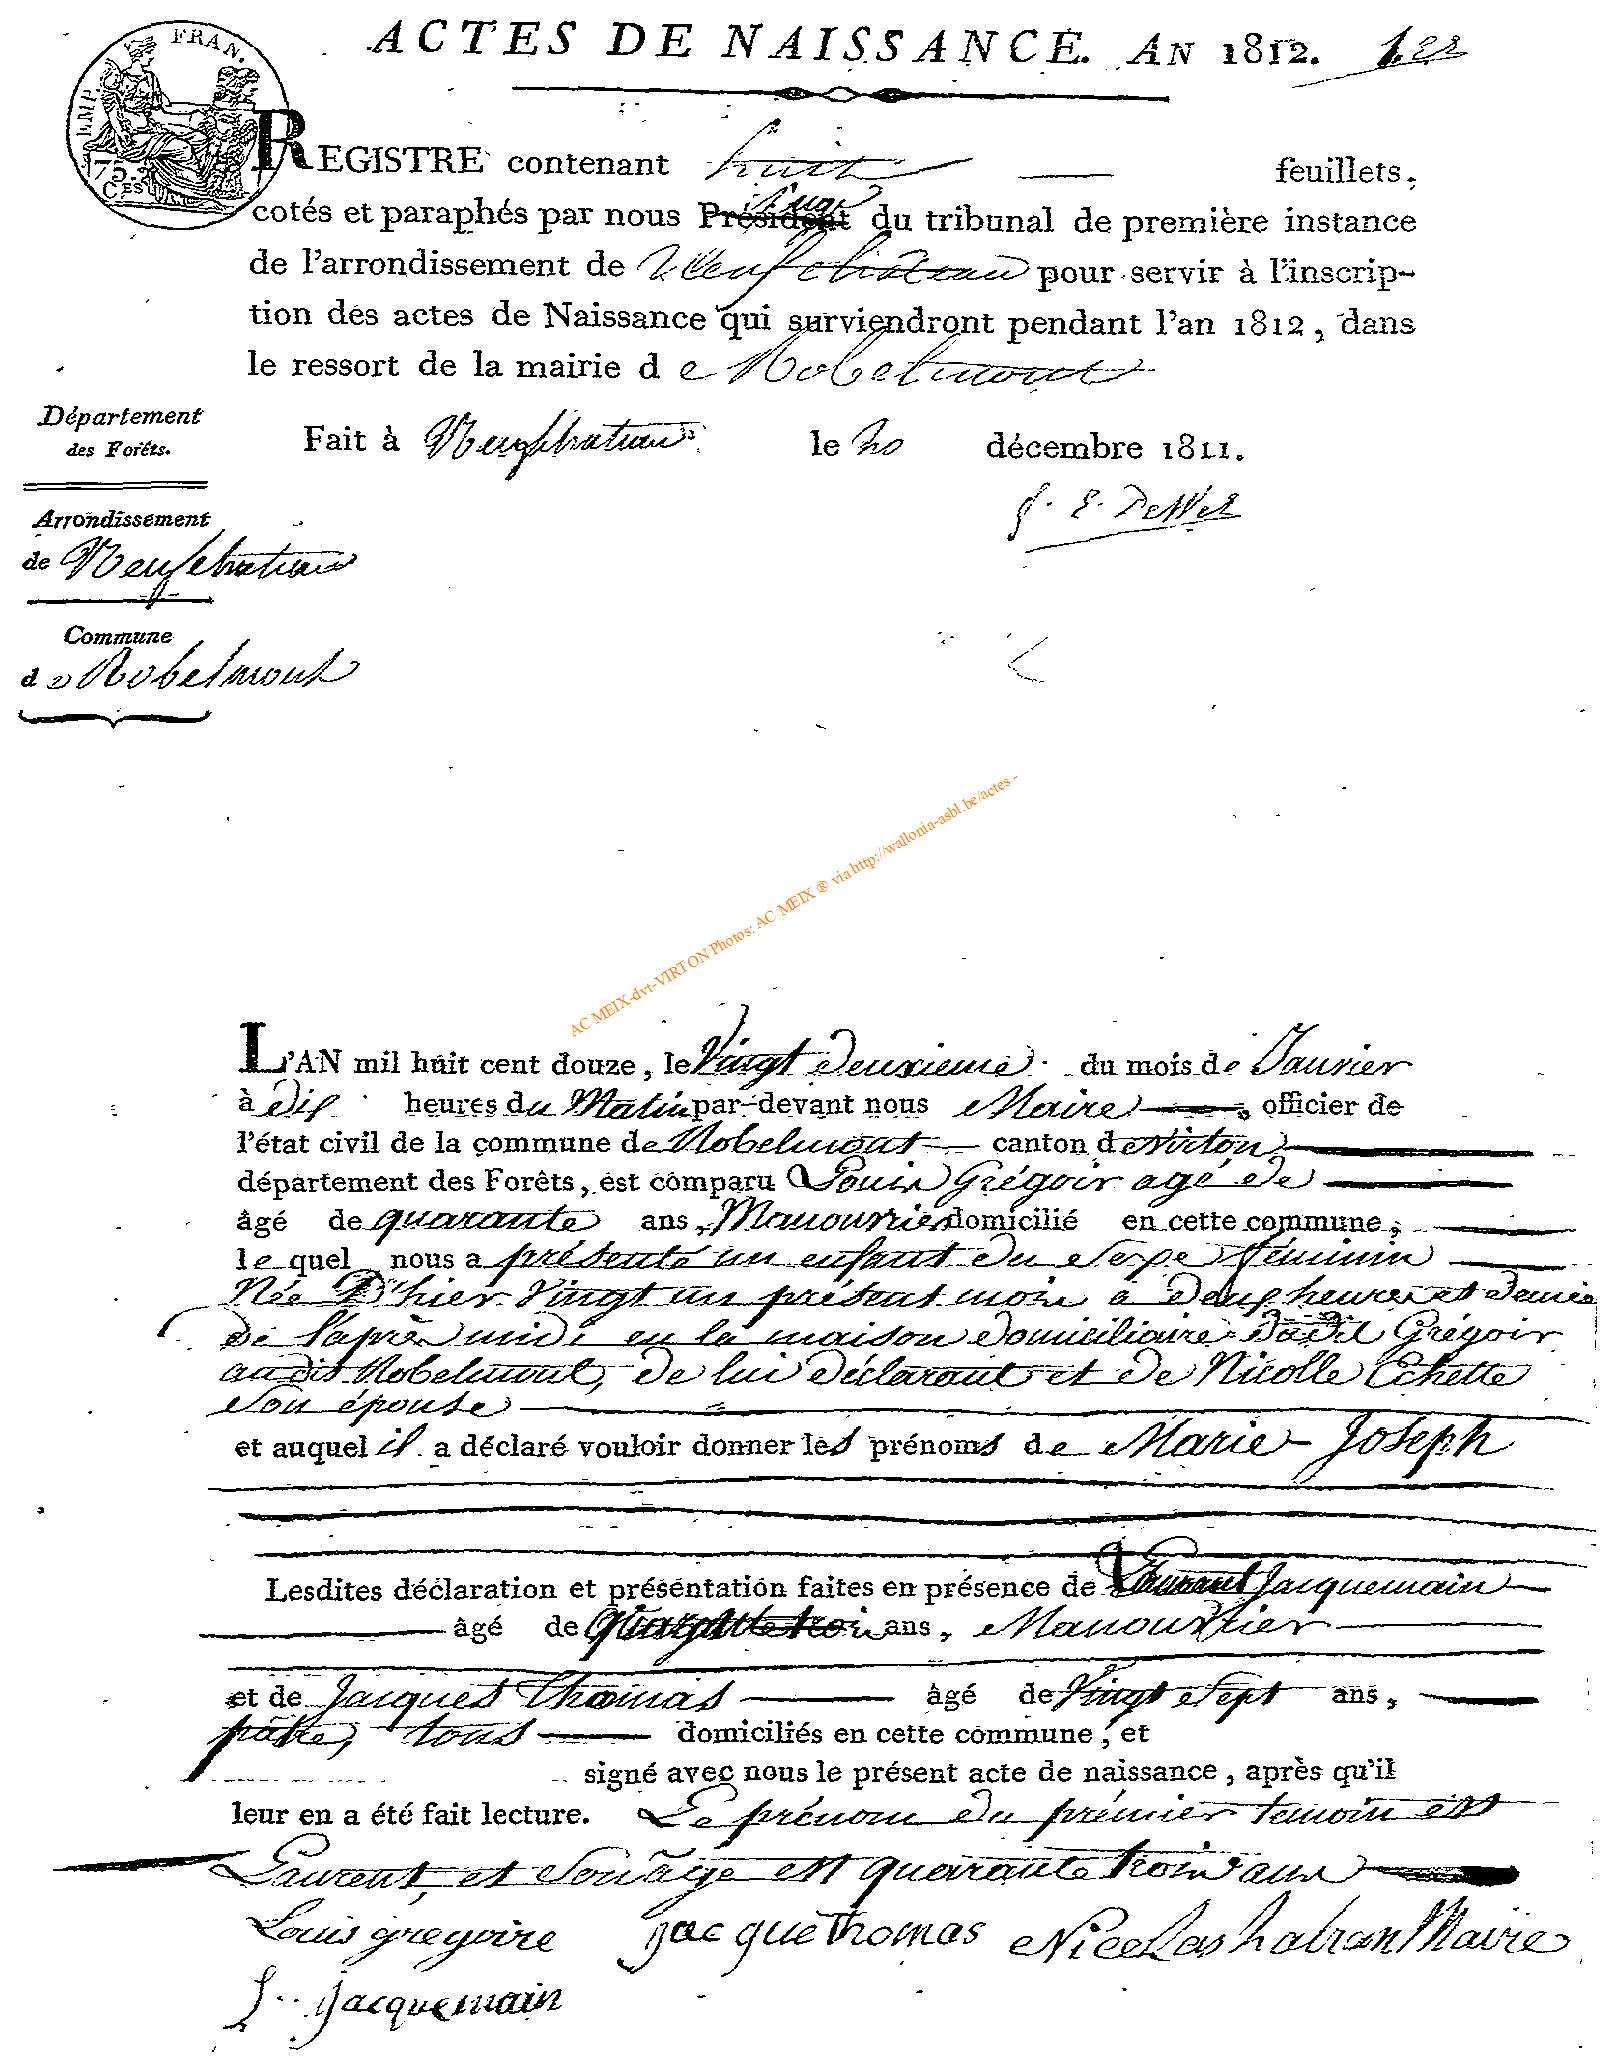 ACTES DE NAISSANCE. AN 1812. 1.er
EMP. FRAN.
75. CES
REGISTRE contenant huit feuillets,
cotés et paraphés par nous Président Juge du tribunal de première instance
de l'arrondissement de Neufchâteau pour servir à l'inscrip-
tion des actes de Naissance qui surviendront pendant l'an 1812, dans
le ressort de la mairie de Robelmont
Fait à Neufchateau le 20 décembre 1811.
Département
des Forêts.
Arrondissement
de Neufchateau
Commune
de Robelmont
AC MEIX-dvt-VIRTON Photos: AC MEIX ® via http://wallonia-asbl.be/actes -
L'AN mil huit cent douze, le Vingt deuxieme du mois de Janvier
à dix heures du Matin par-devant nous Maire officier de
l'état civil de la commune de Robelmont canton de Virton
département des Forêts, est comparu Louis Grégoir agé de
âgé de quarante ans, Manouvrier domicilié en cette commune,
lequel nous a présenté un enfant du Sexe féminin
Née D'hier Vingt un présent mois a deux heures et demie
de l'après midi en la maison domiciliaire dudit Grégoir
audit Robelmont, de lui déclarant et de Nicolle Echette
Son épouse
et auquel il a déclaré vouloir donner les prénoms de Marie-Joseph
Lesdites déclaration et présentation faites en présence de Laurent Jacquemain
âgé de quarante trois ans, Manouvrier
et de Jacques Thomas âgé de Vingt Sept ans,
pâtre, tous domiciliés en cette commune, et
signé avec nous le présent acte de naissance, après qu'il
leur en a été fait lecture. Le prénom du prémier temoin est
Laurent, et Son âge est quarante trois ans
Louis gregoire Jacque Thomas Nicolas habran Maire
L. Jacquemain